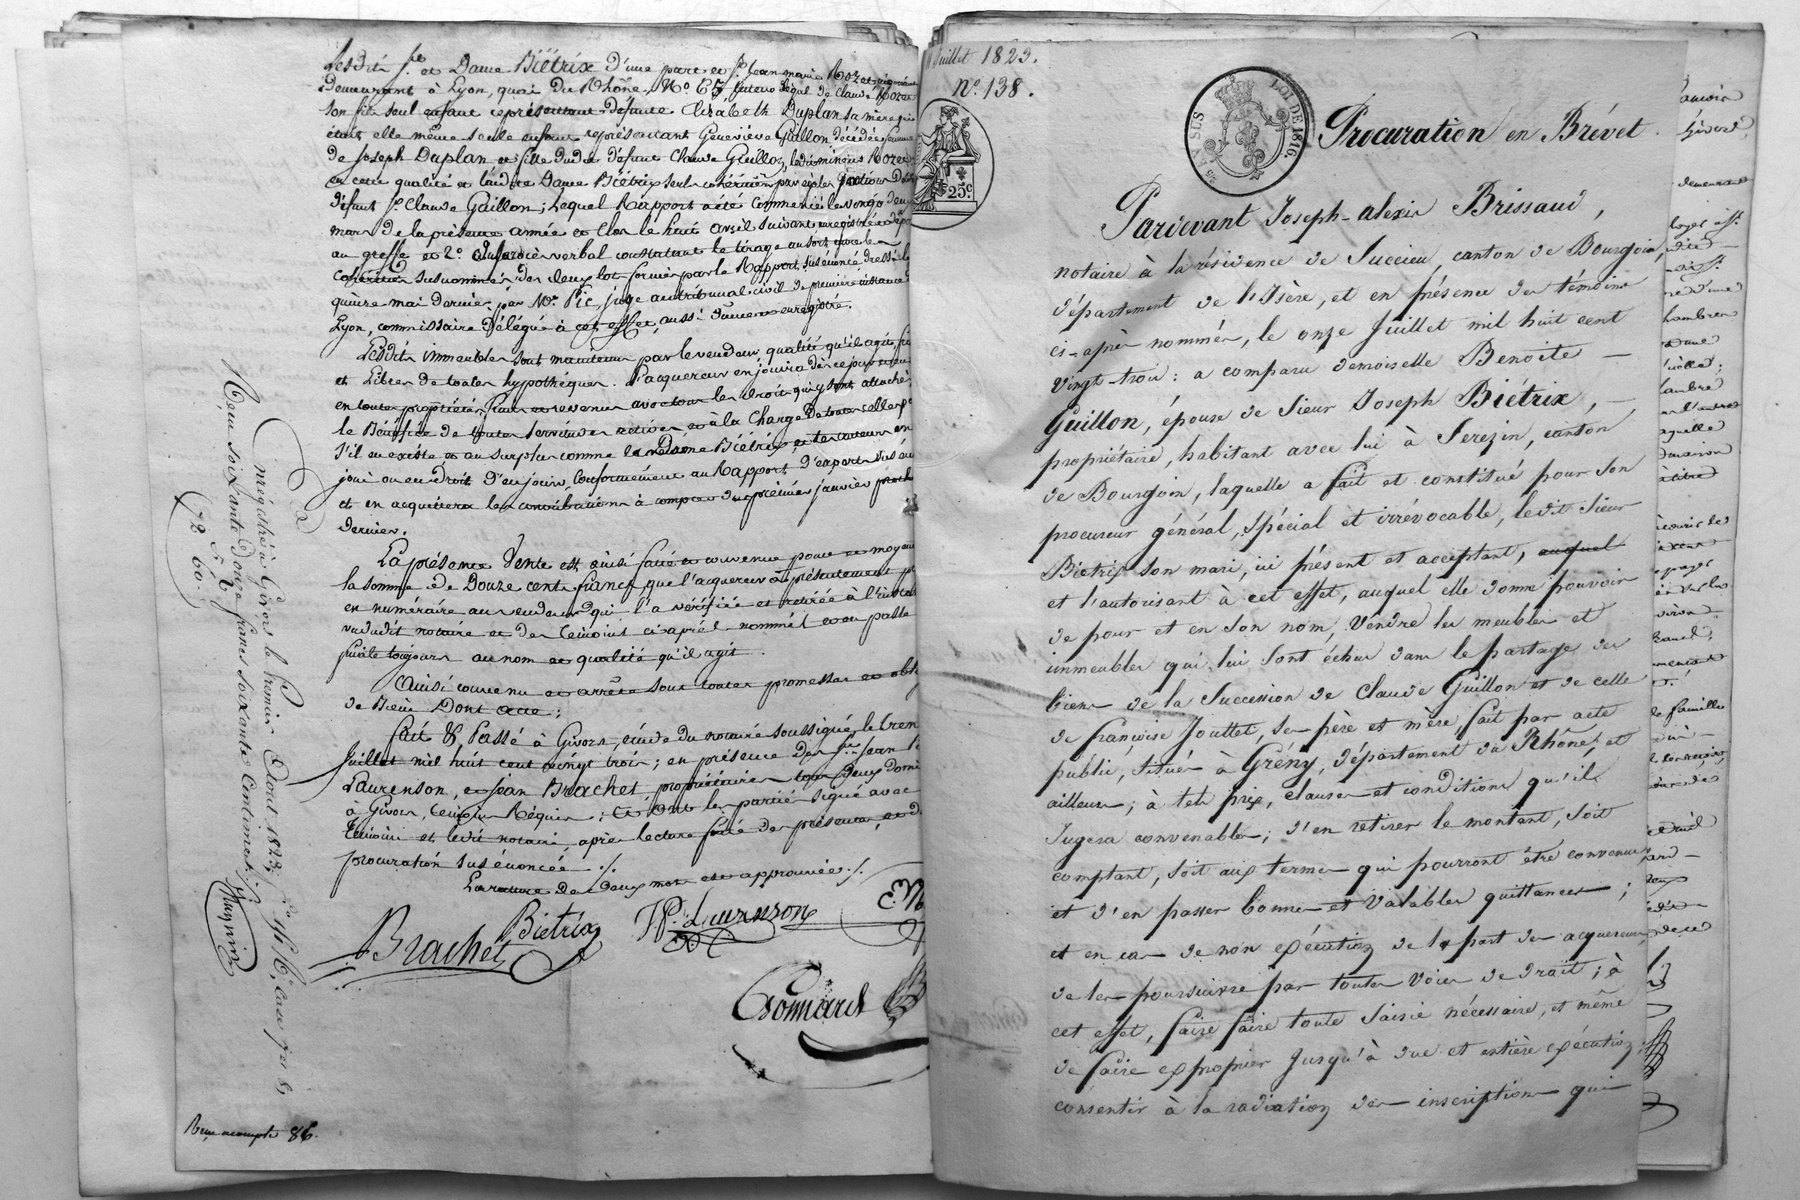 Lesdits Sr. et Dame Biétrix d'une part et Sr. Jean Marie Rozet négociant
demeurant à Lyon, quai du Rhône, No. 65 tuteur légal de Claude Rozet
son fils seul enfant représentant défunte Elizabeth Duplan sa mère qui
était elle même seule enfant représentant Geneviève Guillon décédée femme
de Joseph Duplan et fille dudit défunt Claude Guillon, ledit mineur Rozet
en cette qualité et ladite Dame Biétrix seuls cohéritiers par égales portions dudit
défunt Sr. Claude Guillon; lequel Rapport a été commencé le vingt deux
mars de la présente année et clos le huit avril suivant enregistré et déposé
au greffe et 2o. du procès verbal constatant le tirage au sort que les
cohéritiers susnommés des deux lots formés par le Rapport susénoncé dressé le
quinze mai dernier, par Mr. Pic, juge au tribunal civil de première instance
Lyon, commissaire délégué à cet effet, aussi dûment enregistré.
Lesdits immeubles sont maintenus par le vendeur, qualité qu'il agit,
et libres de toutes hypothèques. L'acquéreur en jouira dès ce jour
en toute propriété, fruits et revenus avec tous les droits qui y sont attachés
le Bénéfice de toutes servitudes actives et à la charge de toutes celles
s'il en existe et au surplus comme la Dame Biétrix, et les auteurs en
joui ou eu droit d'en jouir, conformément au Rapport d'experts
et en acquittera les contributions à compter du premier janvier
dernier.
La présente Vente est ainsi faite et convenue pour et moyennant
la somme de Douze cents francs, que l'acquéreur a présentement
en numéraire au vendeur qui l'a vérifiée et retirée à l'instant
vu dudit notaire et des témoins ci-après nommés et en passe
quitte toujours au nom et qualité qu'il agit.
Ainsi convenu et arrêté sous toutes promesses et
de Biens Dont acte;
Fait & Passé à Givors, étude du notaire soussigné, le
Juillet mil huit cent vingt trois; en présence des Srs. Jean
Laurenson, et Jean Brachet propriétaires tous deux
à Givors, témoins Requis; Et ont les parties signé avec
témoins et ledit notaire, après lecture faite des présentes,
procuration susénoncée ./.
La rature de deux mots est approuvée ./.
Brachet
Biétrix
JP. Laurenson
Enrégistré à Givors le Premier Aout 1823,
Reçu soixante douze francs soixante centimes
72 f. 60 c.
Reçu acompte 86.
Juillet 1823.
No. 138.
25c.
LOI DE 1816.
Procuration en Brévet.
Pardevant Joseph-alexis Brissaud,
notaire à la résidence de Succieu, canton de Bourgoin,
département de l'Isère, et en présence des témoins
ci-après nommés, le onze Juillet mil huit cent
vingt-trois: a comparu demoiselle Benoîte
Guillon, épouse de sieur Joseph Biétrix,
propriétaire, habitant avec lui à Serezin, canton
de Bourgoin, laquelle a fait et constitué pour son
procureur général, spécial et irrévocable, ledit sieur
Bietrix son mari, ici présent et acceptant, auquel
et l'autorisant à cet effet, auquel elle donne pouvoir
de pour et en son nom, Vendre les meubles et
immeubles qui lui sont échus dans le partage des
biens de la succession de Claude Guillon et de celle
de françoise Jouttet, ses père et mère, fait par acte
public, situés à Grény, département du Rhône, et
ailleurs; à tels prix, clauses et conditions qu'il
Jugera convenables; d'en retirer le montant, soit
comptant, soit aux termes qui pourront être convenus
et d'en passer bonnes et valables quittances;
et en cas de non exécution de la part des acquereurs,
de les poursuivre par toutes voies de droit; à
cet effet, faire faire toute saisie nécessaire, et même
de faire exproprier Jusqu'à due et entière exécution;
consentir à la radiation des inscriptions qui